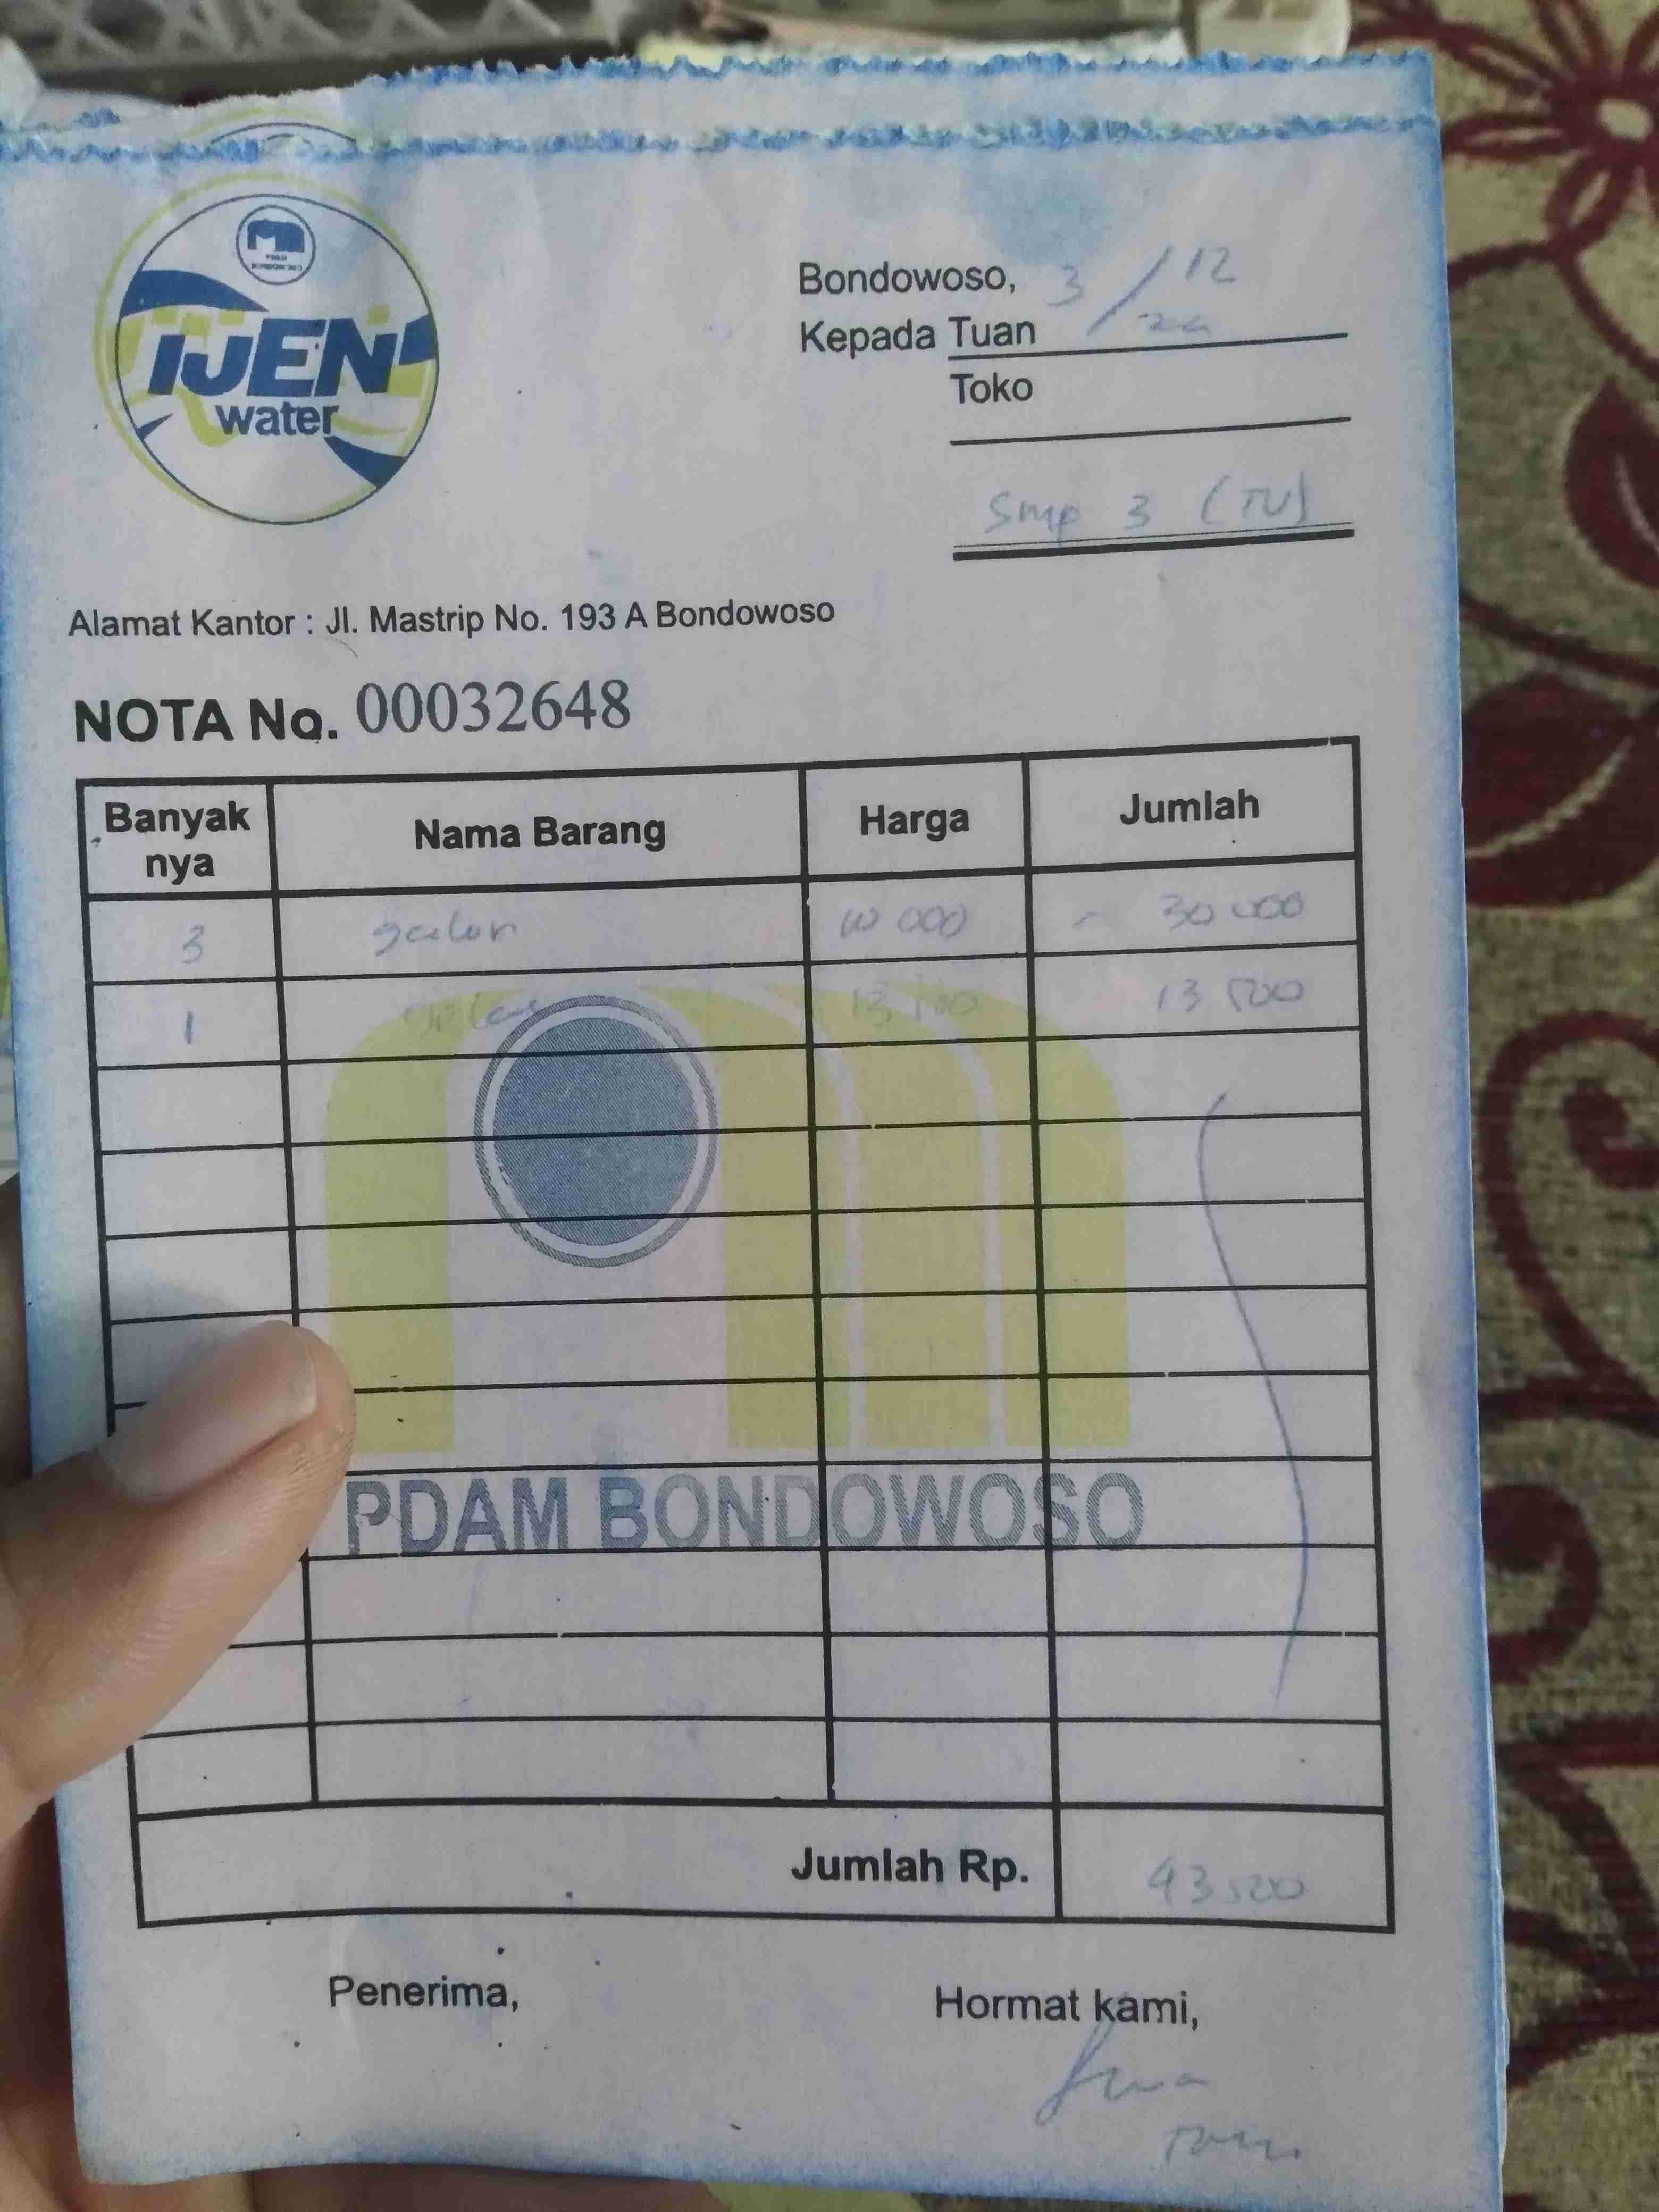 PDAM
BONDOWOSO
IJEN
water
Bondowoso, 3/12
Kepada Tuan
Toko
Smp 3 (TU)
Alamat Kantor : Jl. Mastrip No. 193 A Bondowoso
NOTA No. 00032648
Banyak nya Nama Barang Harga Jumlah
3 galon 10 000 30 000
1 13 500 13 500
PDAM BONDOWOSO
Jumlah Rp. 43.500
Penerima, Hormat kami,